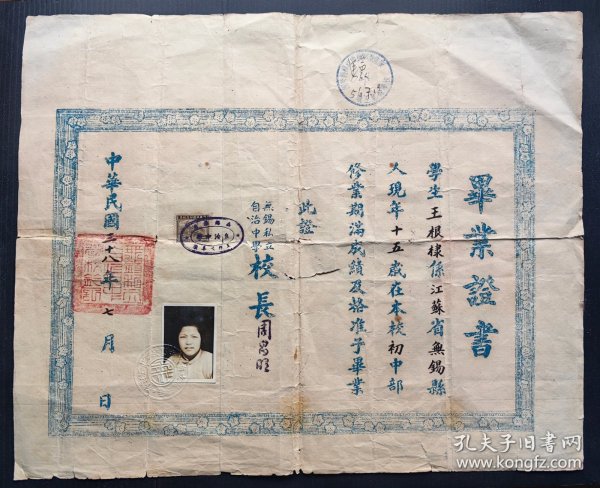 畢業證書
學生王根棣係江蘇省無錫縣
人現年十五歲在本校初中部
修業期滿成績及格准予畢業
此證
無錫私立
自治中學
校長周昌明
中華民國三十八年七月 日
孔夫子旧书网
www.kongfz.com